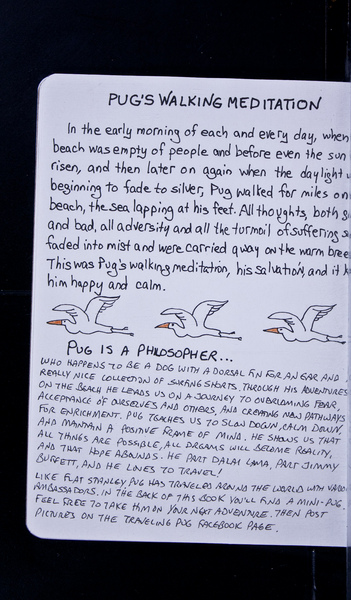 PUG'S WALKING MEDITATION
In the early morning of each and every day, when
beach was empty of people and before even the sun
risen, and then later on again when the daylight
beginning to fade to silver, Pug walked for miles on
beach, the sea lapping at his feet. All thoughts, both
and bad, all adversity and all the turmoil of suffering
faded into mist and were carried away on the warm
This was Pug's walking meditation, his salvation, and it
him happy and calm.
PUG IS A PHILOSOPHER...
WHO HAPPENS TO BE A DOG WITH A DORSAL FIN FOR AN EAR AND
REALLY NICE COLLECTION OF SURFING SHORTS. THROUGH HIS ADVENTURES
ON THE BEACH HE LEADS US ON A JOURNEY TO OVERCOMING FEAR,
ACCEPTANCE OF OURSELVES AND OTHERS, AND CREATING NEW PATHWAYS
FOR ENRICHMENT. PUG TEACHES US TO SLOW DOWN, CALM DOWN,
AND MAINTAIN A POSITIVE FRAME OF MIND. HE SHOWS US THAT
ALL THINGS ARE POSSIBLE, ALL DREAMS WILL BECOME REALITY,
AND THAT HOPE ABOUNDS. HE PART DALAI LAMA, PART JIMMY
BUFFETT, AND HE LOVES TO TRAVEL!
LIKE FLAT STANLEY PUG HAS TRAVELED AROUND THE WORLD WITH
AMBASSADORS. IN THE BACK OF THIS BOOK YOU'LL FIND A MINI-PUG.
FEEL FREE TO TAKE HIM ON YOUR NEXT ADVENTURE. THEN POST
PICTURES ON THE TRAVELING PUG FACEBOOK PAGE.